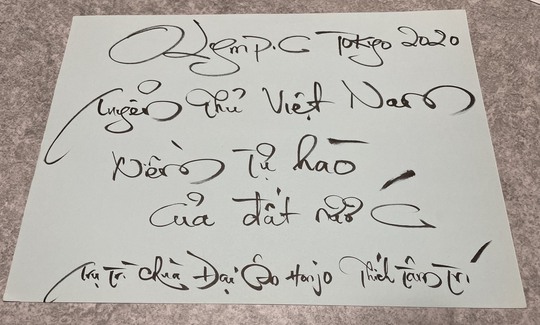 Olympic Tokyo 2020
Tuyển thủ Việt Nam
Niềm Tự hào
của đất nước
Trụ Trì chùa Đại Ân Honjo Thích Tâm Trí